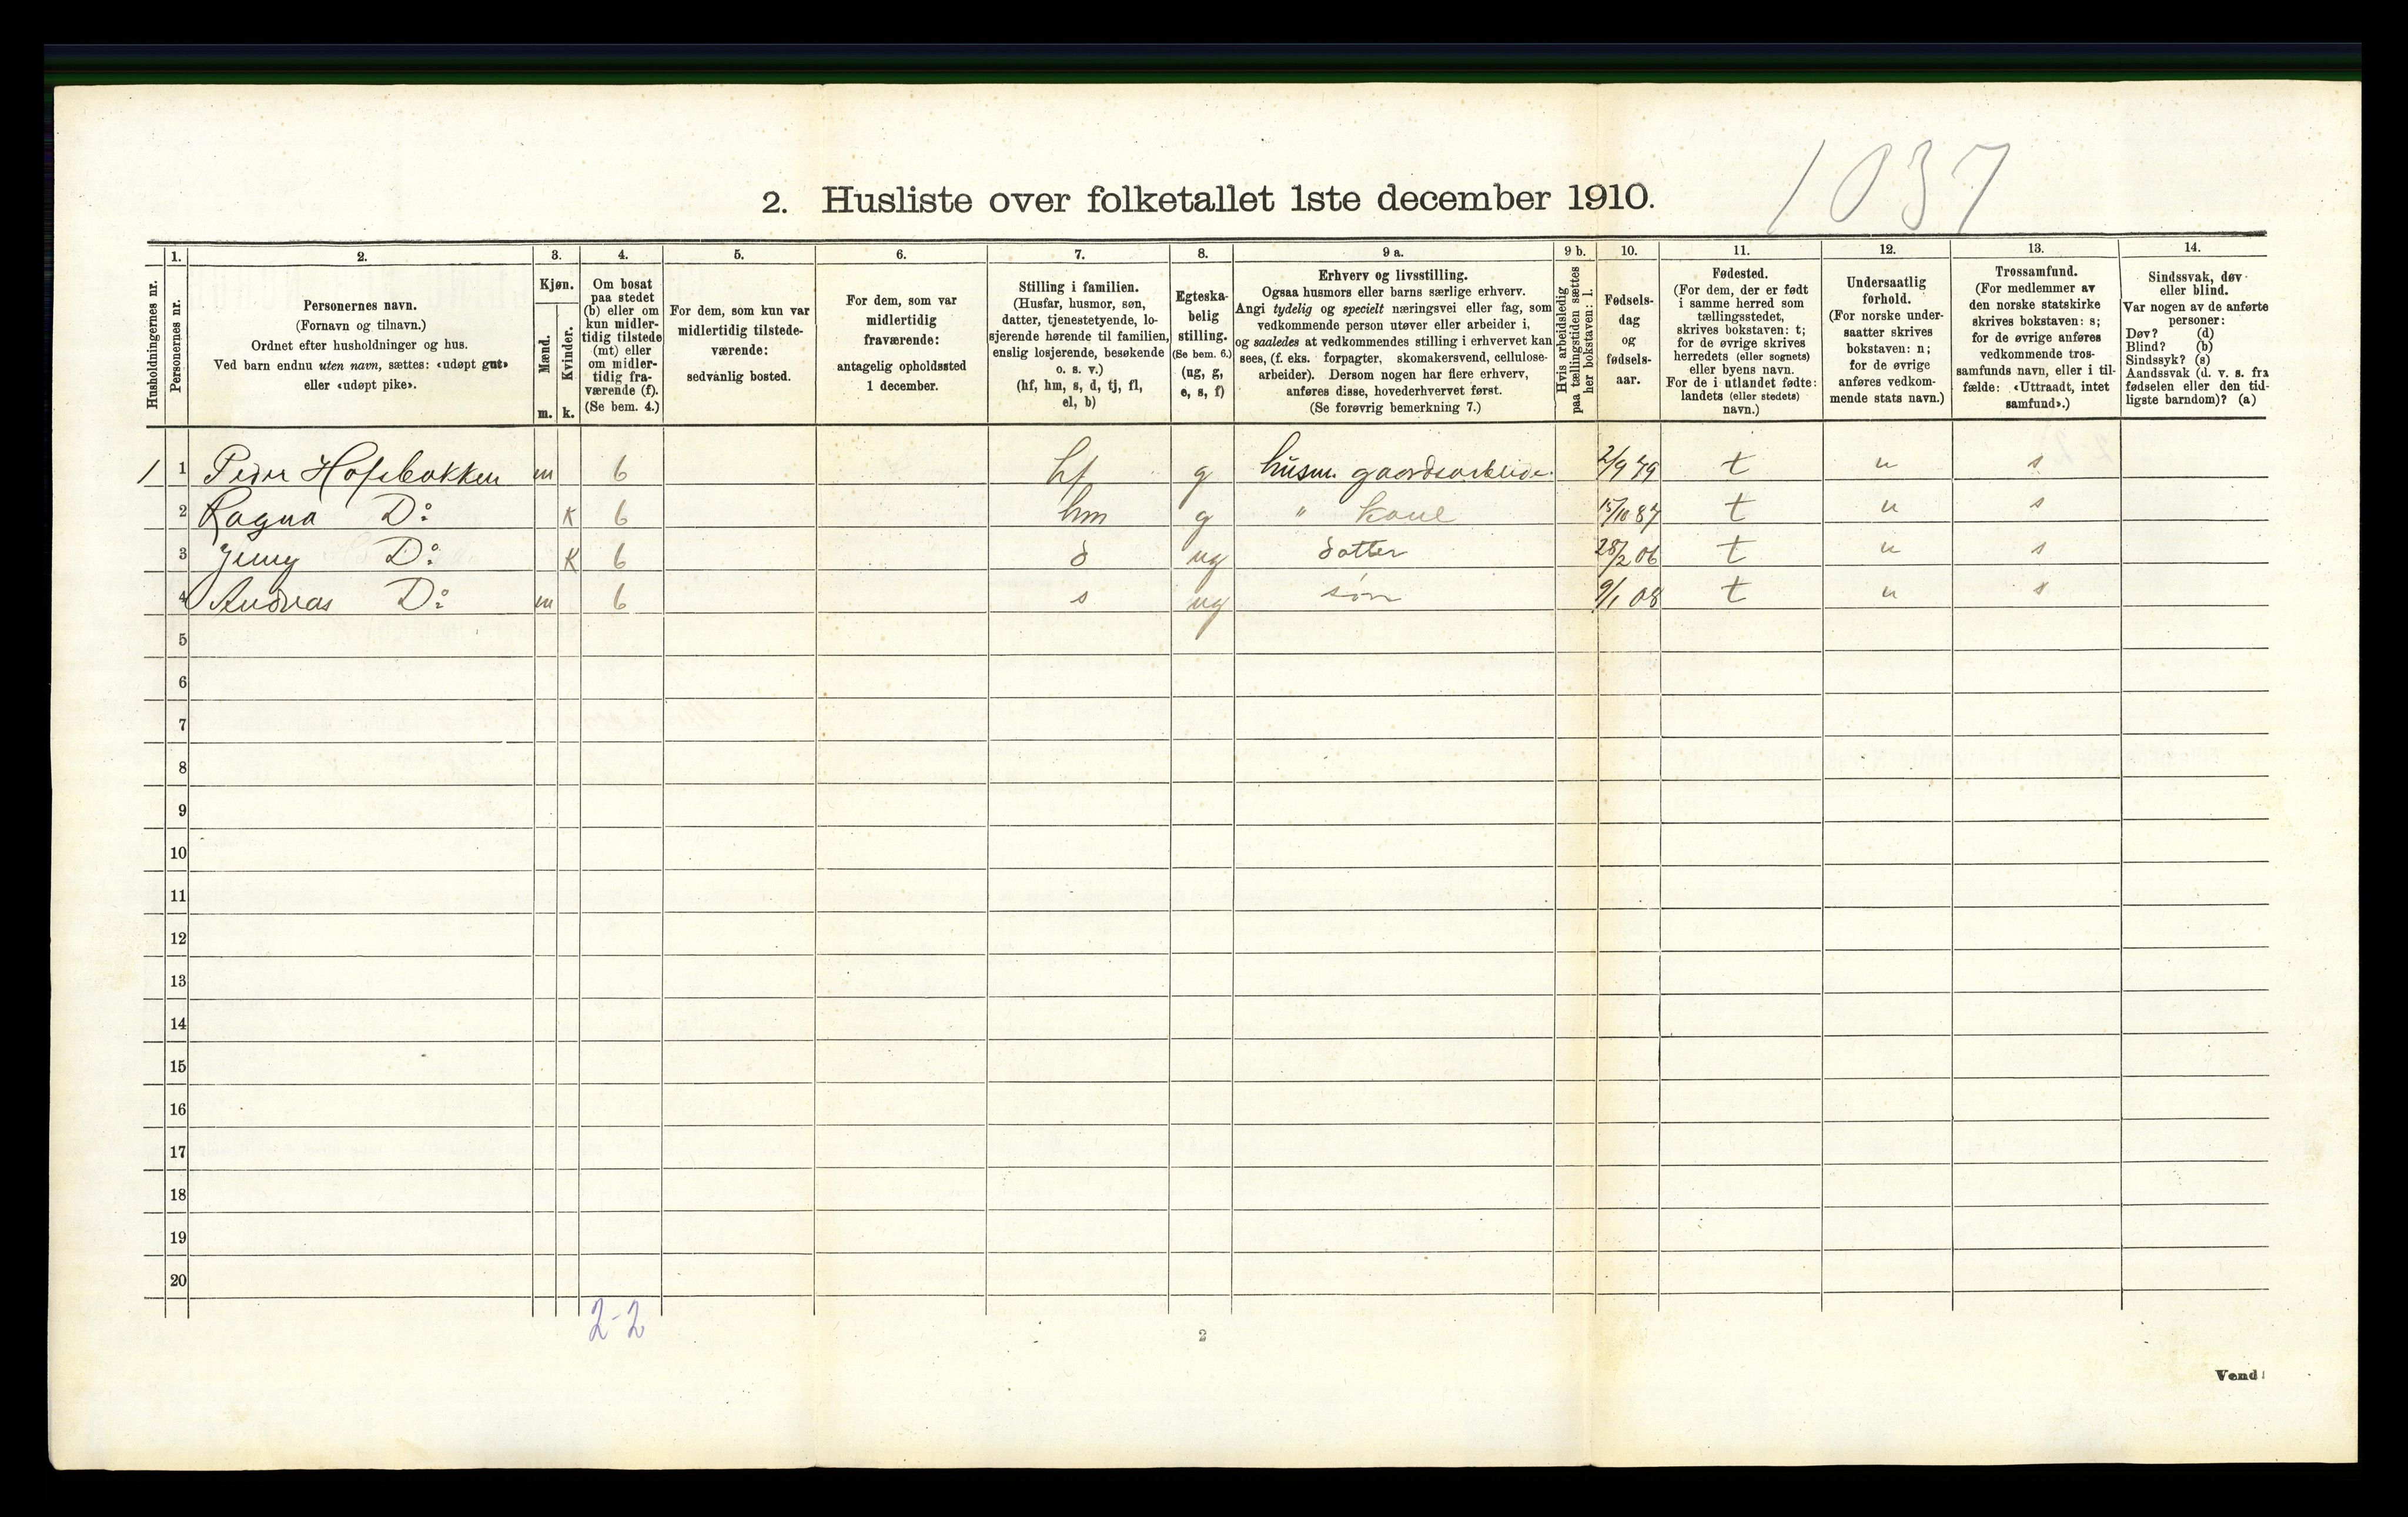 1037
2. Husliste over folketallet 1ste december 1910.
Husholdningernes nr.
1.
Personernes nr.
2.
Personernes navn.
(Fornavn og tilnavn.)
Ordnet efter husholdninger og hus.
Ved barn endnu uten navn, sættes: «udøpt gut»
eller «udøpt pike».
3.
Kjøn.
Mænd.
m.
Kvinder.
k.
4.
Om bosat
paa stedet
(b) eller om
kun midler-
tidig tilstede
(mt) eller
om midler-
tidig fra-
værende (f).
(Se bem. 4.)
5.
For dem, som kun var
midlertidig tilstede-
værende:
sedvanlig bosted.
6.
For dem, som var
midlertidig
fraværende:
antagelig opholdssted
1 december.
7.
Stilling i familien.
(Husfar, husmor, søn,
datter, tjenestetyende, lo-
sjerende hørende til familien,
enslig losjerende, besøkende
o. s. v.)
(hf, hm, s, d, tj, fl,
el, b)
8.
Egteska-
belig
stilling.
(Se bem. 6.)
(ug, g,
e, s, f)
9 a.
Erhverv og livsstilling.
Ogsaa husmors eller barns særlige erhverv.
Angi tydelig og specielt næringsvei eller fag, som
vedkommende person utøver eller arbeider i,
og saaledes at vedkommendes stilling i erhvervet kan
sees, (f. eks. forpagter, skomakersvend, cellulose-
arbeider). Dersom nogen har flere erhverv,
anføres disse, hovederhvervet først.
(Se forøvrig bemerkning 7.)
9 b.
Hvis arbeidsledig
paa tællingstiden sættes
her bokstaven: l.
10.
Fødsels-
dag
og
fødsels-
aar.
11.
Fødested.
(For dem, der er født
i samme herred som
tællingsstedet,
skrives bokstaven: t;
for de øvrige skrives
herredets (eller sognets)
eller byens navn.
For de i utlandet fødte:
landets (eller stedets)
navn.)
12.
Undersaatlig
forhold.
(For norske under-
saatter skrives
bokstaven: n;
for de øvrige
anføres vedkom-
mende stats navn.)
13.
Trossamfund.
(For medlemmer av
den norske statskirke
skrives bokstaven: s;
for de øvrige anføres
vedkommende tros-
samfunds navn, eller i til-
fælde: «Uttraadt, intet
samfund».)
14.
Sindssvak, døv
eller blind.
Var nogen av de anførte
personer:
Døv? (d)
Blind? (b)
Sindssyk? (s)
Aandssvak (d. v. s. fra
fødselen eller den tid-
ligste barndom)? (a)
1 1 Peder Hofsbakken m b hf g husm. gaardsarbeide. 2/9 79 t n s
2 Ragna Do K b hm g " kone 15/10 87 t n s
3 Jenny Do K b d ug datter 28/2 06 t n s
4 Andreas Do m b s ug søn 9/1 08 t n s
5
6
7
8
9
10
11
12
13
14
15
16
17
18
19
20
2-2
2
Vend!